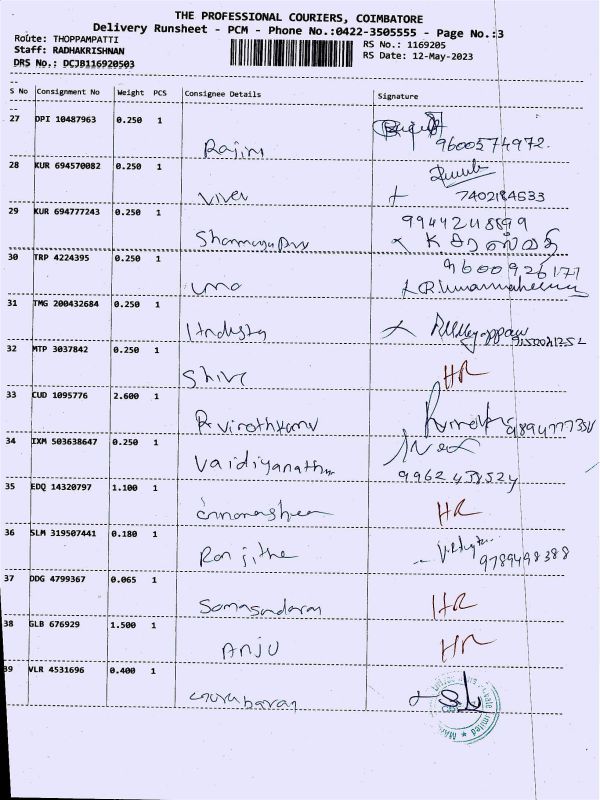 THE PROFESSIONAL COURIERS, COIMBATORE
Delivery Runsheet - PCM - Phone No.:0422-3505555 - Page No.:3
Route: THOPPAMPATTI RS No.: 1169205
Staff: RADHAKRISHNAN RS Date: 12-May-2023
DRS No.: DCJB116920503
S No Consignment No Weight PCS Consignee Details Signature
27 DPI 10487963 0.250 1
Rajini 9600574972.
28 KUR 694570082 0.250 1
Vivek 7402184533
29 KUR 694777243 0.250 1
9944248899
க சரஸ்வதி
30 TRP 4224395 0.250 1
9600926177
Uma
31 TMG 200432684 0.250 1
32 MTP 3037842 0.250 1
Shiva HR
33 CUD 1095776 2.600 1
34 IXM 503638647 0.250 1
Vaidiyanathan
35 EDQ 14320797 1.100 1
HR
36 SLM 319507441 0.180 1
Ranjitha 9789498388
37 DDG 4799367 0.065 1
Somasundaram HR
38 GLB 676929 1.500 1
ANJU HR
39 VLR 4531696 0.400 1